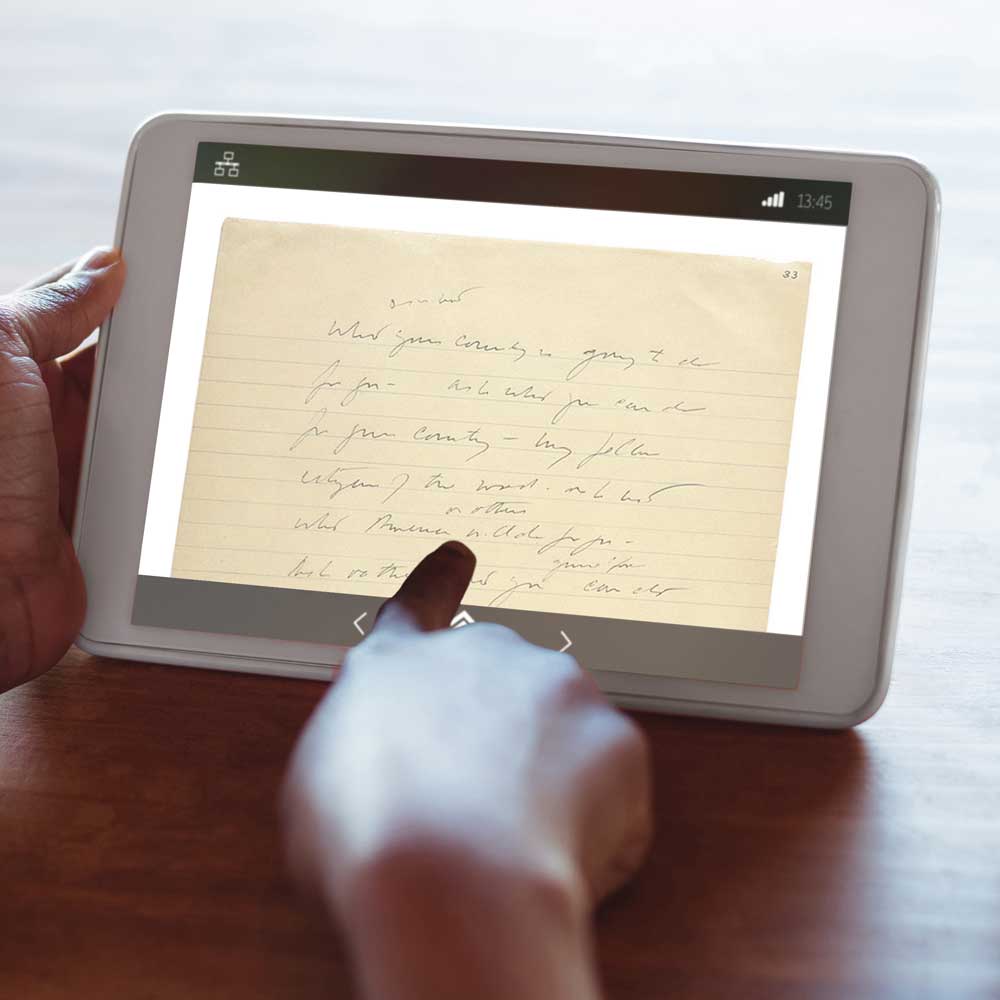 13:45
33
ask not
what your country is going to do
for you – ask what you can do
for your country – my fellow
citizens of the world – ask not
or others
what America will do for you –
can do